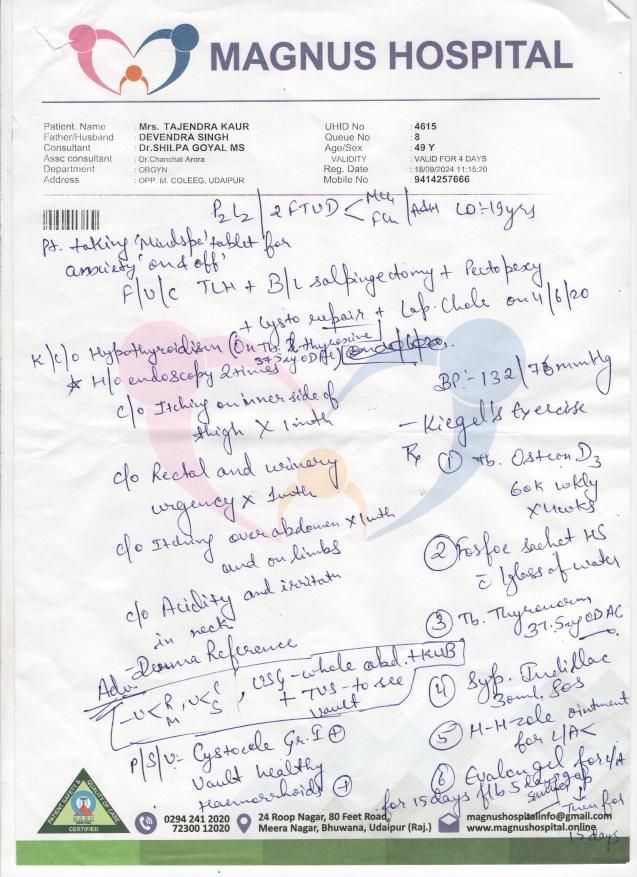 MAGNUS HOSPITAL
Patient. Name : Mrs. TAJENDRA KAUR
Father/Husband : DEVENDRA SINGH
Consultant : Dr.SHILPA GOYAL MS
Assc consultant : Dr.Chanchal Arora
Department : OBGYN
Address : OPP. M. COLEEG, UDAIPUR
UHID No : 4615
Queue No : 8
Age/Sex : 49 Y
VALIDITY : VALID FOR 4 DAYS
Reg. Date : 18/09/2024 11:15:20
Mobile No : 9414257666
P2L2 | 2 FTUD < Mch FCh | LCB - 19yrs
Pt. taking 'Mindspe' tablet for
anxiety 'on & off'
F/U/C TLH + B/L salpingectomy + Pectopexy
+ Cysto repair + Lap. Chole on 4/6/20
K/C/O Hypothyroidism (On Tb. thyroxine
37.5mg OD)
* H/O endoscopy 2 times
C/o Itching on inner side of
thigh X 1mth
C/o Rectal and urinary
urgency X 1mth
C/o Itching over abdomen X 1mth
and on limbs
C/o Acidity and irritatn
in neck
- Derma Reference
Adv.
- U < R M , U < C S , USG - whole abd. + KUB
+ TVS - to see
vault
P/S/V:- Cystocele Gr. I +
Vault healthy
haemorrhoids +
BP:- 132/76 mmHg
- Kiegel's Exercise
Rx
① Tb. Osteon D3
60K wkly
X 4 weeks
② Fosfoc sachet HS
c̄ 1 glass of water
③ Tb. Thyronorm
37.5mg OD AC
④ Syp. Indillac
30ml SOS
⑤ H-H-Zole ointment
for L/A
⑥ Evalon gel for L/A
for 15 days f/b 5 days gap
then for
15 days
PATIENT SAFETY & QUALITY OF CARE
CERTIFIED
0294 241 2020
72300 12020
24 Roop Nagar, 80 Feet Road,
Meera Nagar, Bhuwana, Udaipur (Raj.)
magnushospitalinfo@gmail.com
www.magnushospital.online